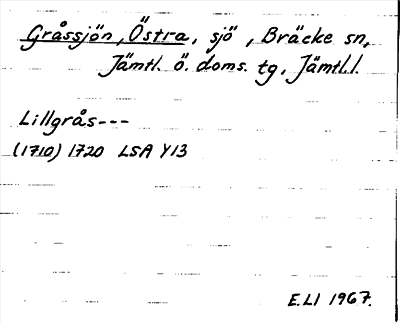 Gråssjön, Östra, sjö, Bräcke sn,
Jämtl. ö. doms. tg, Jämtl.l.
Lillgrås---
(1710) 1720 LSA Y13
E.LI 1967.